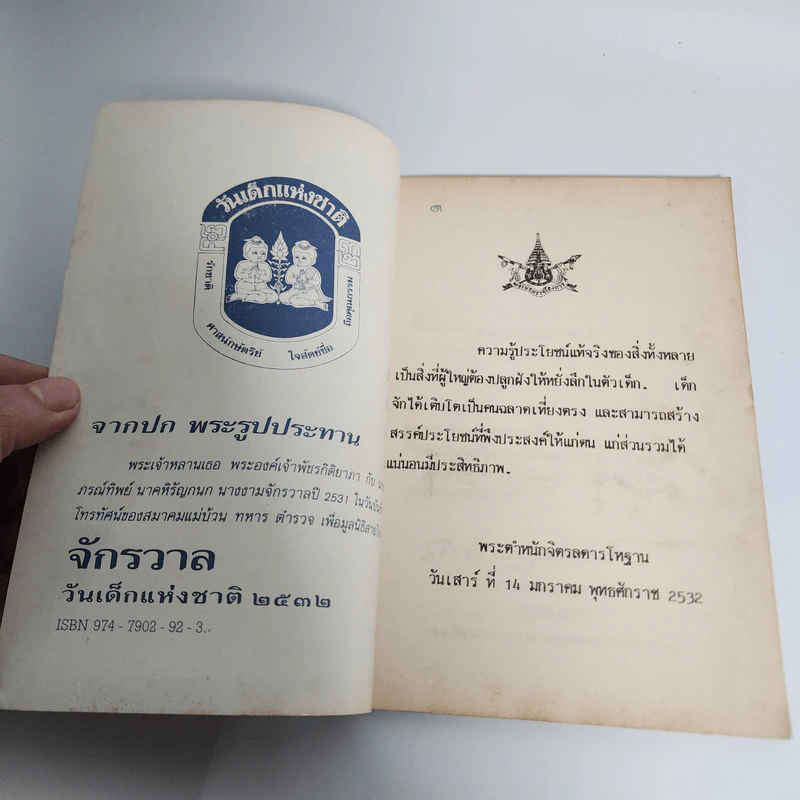 วันเด็กแห่งชาติ
รักชาติ
ศาสน์กษัตริย์
ใจสัตย์ซื่อ
ถือคุณธรรม
จากปก พระรูปประทาน
พระเจ้าหลานเธอ พระองค์เจ้าพัชรกิติยาภา กับ
ภรณ์ทิพย์ นาคหิรัญกนก นางงามจักรวาลปี 2531 ในวันบันทึก
โทรทัศน์ของสมาคมแม่บ้าน ทหาร ตำรวจ เพื่อมูลนิธิสาย
จักรวาล
วันเด็กแห่งชาติ ๒๕๓๒
ISBN 974 - 7902 - 92 - 3.
ความรู้ประโยชน์แท้จริงของสิ่งทั้งหลาย
เป็นสิ่งที่ผู้ใหญ่ต้องปลูกฝังให้หยั่งลึกในตัวเด็ก. เด็ก
จักได้เติบโตเป็นคนฉลาดเที่ยงตรง และสามารถสร้าง
สรรค์ประโยชน์ที่พึงประสงค์ให้แก่ตน แก่ส่วนรวมได้
แน่นอนมีประสิทธิภาพ.
พระตำหนักจิตรลดารโหฐาน
วันเสาร์ ที่ 14 มกราคม พุทธศักราช 2532